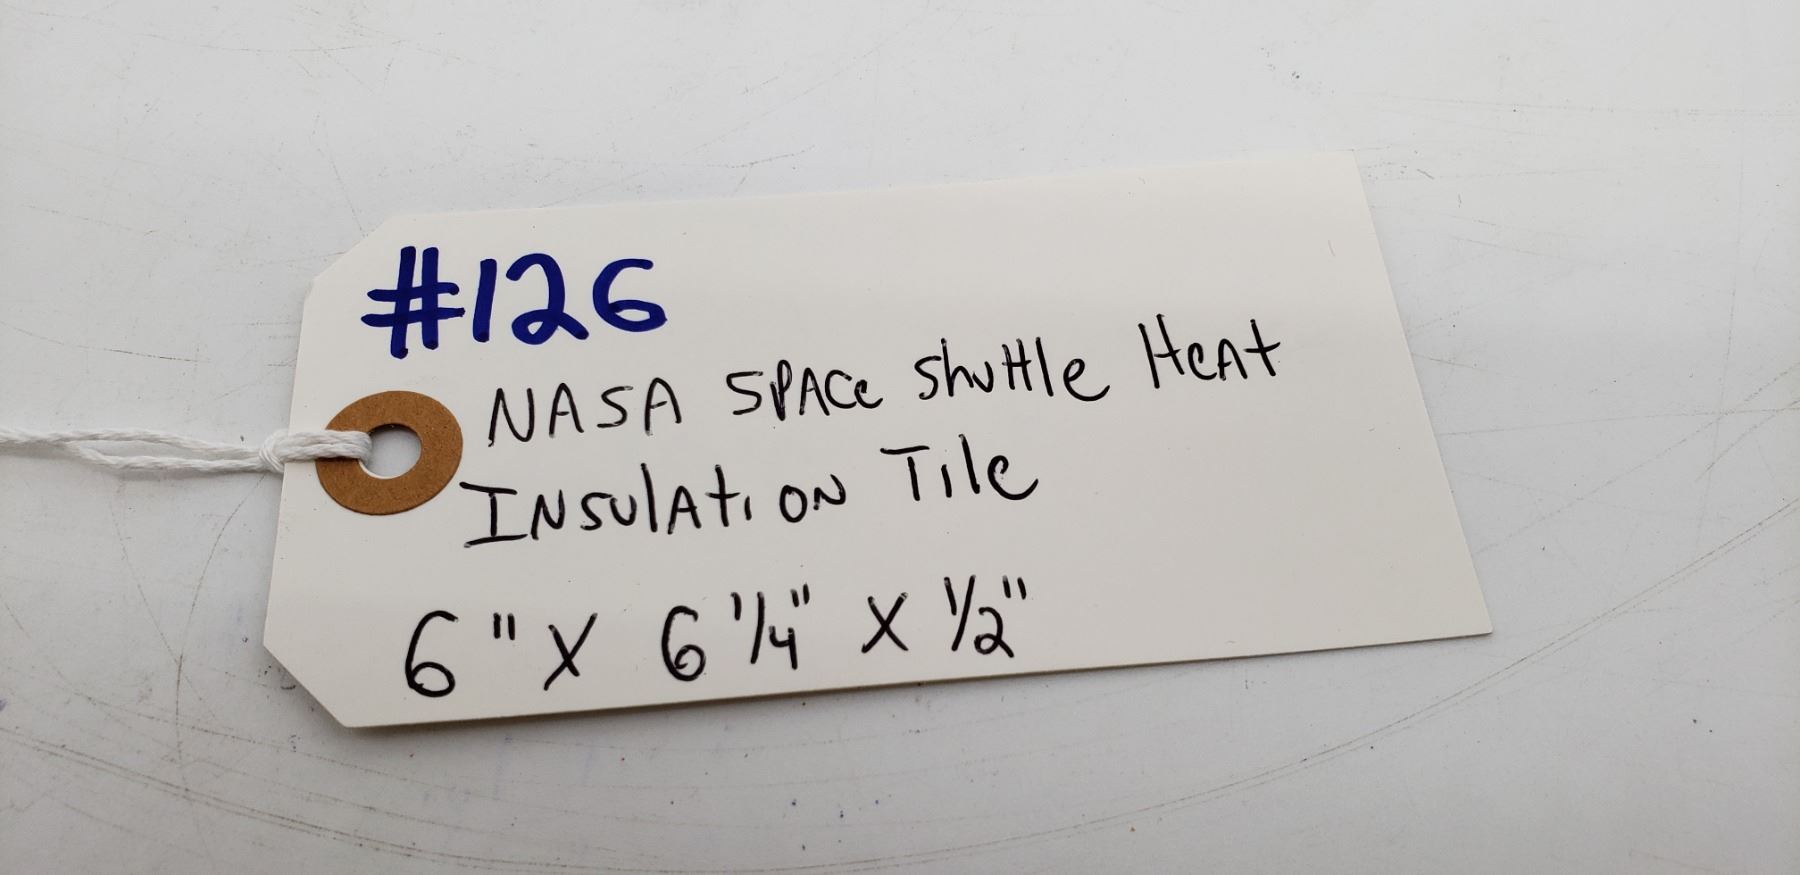 #126
NASA SPACe shuttle HeAt
INsulAtiON Tile
6" X 6 1/4" X 1/2"